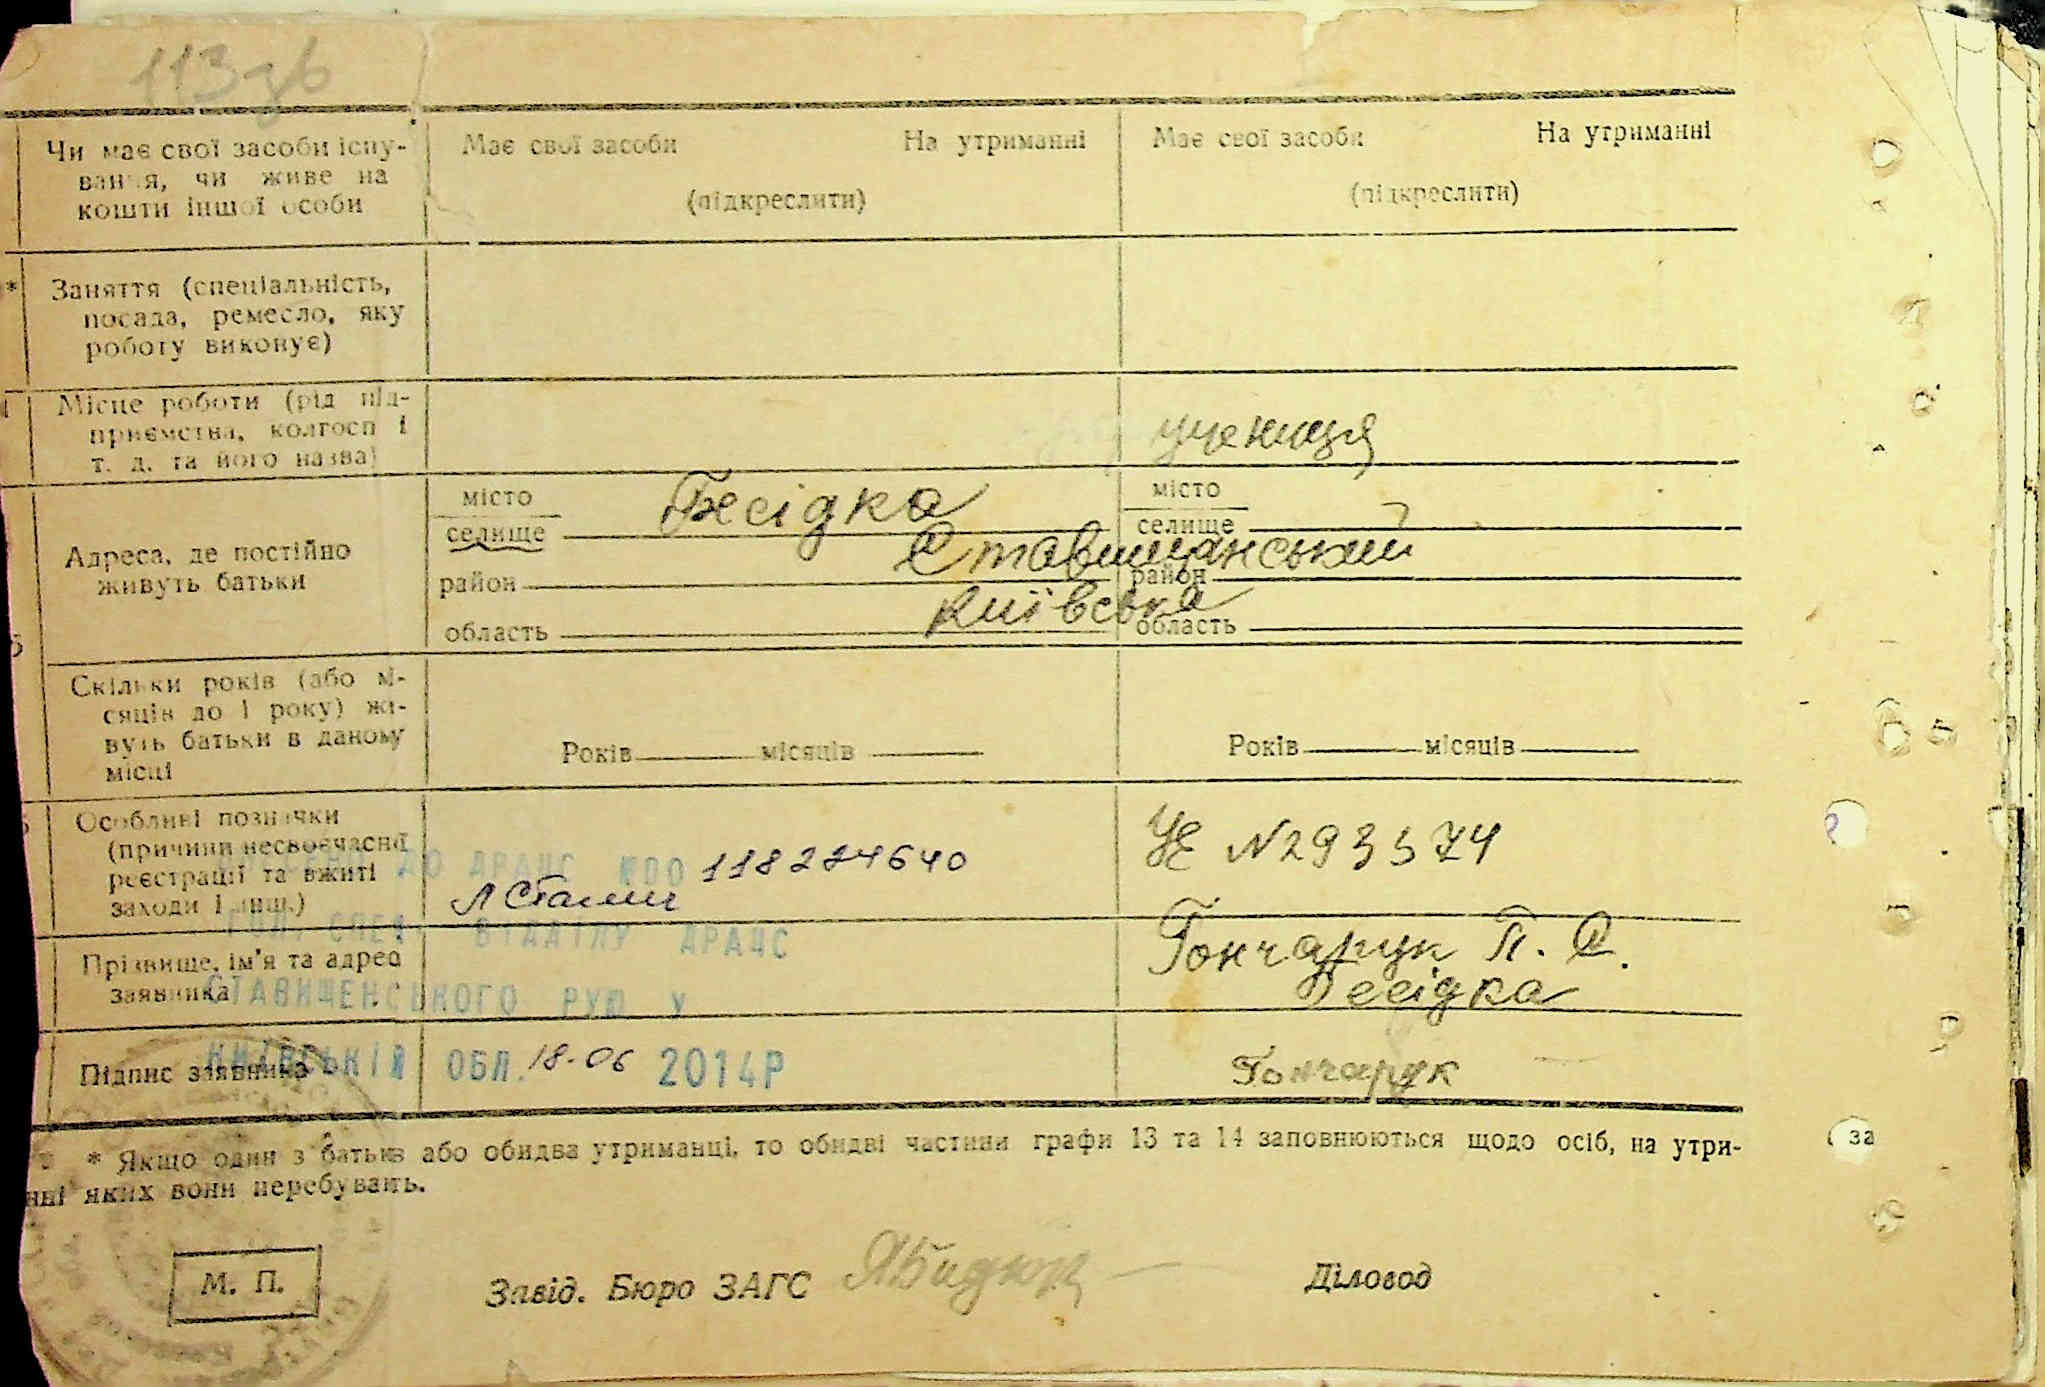 113 зв
Чи має свої засоби існу-
вання, чи живе на
кошти іншої особи
Має свої засоби На утриманні
(підкреслити)
Має свої засоби На утриманні
(підкреслити)
* Заняття (спеціальність,
посада, ремесло, яку
роботу виконує)
Місце роботи (рід під-
приємства, колгосп і
т. д. та його назва)
учениця
Адреса, де постійно
живуть батьки
місто
селище Бесідка
район Ставищанський
область Київська
місто
селище
район
область
Скільки років (або мі-
сяців до 1 року) жи-
вуть батьки в даному
місці
Років місяців
Років місяців
Особливі позначки
(причини несвоєчасної
реєстрації та вжиті
заходи і інш.)
ДО ДРАЦС
118224640
УЕ N293574
СПЕЦ ВІДДІЛУ ДРАЦС
Прізвище, ім'я та адреса
заявника
Гончарук П. С.
Бесідка
СТАВИЩЕНСЬКОГО РУЮ У
Підпис заявника
КИЇВСЬКІЙ ОБЛ. 18-06 2014Р
Гончарук
* Якщо один з батьків або обидва утриманці, то обидві частини графи 13 та 14 заповнюються щодо осіб, на утри-
нні яких вони перебувають.
за
М. П.
Завід. Бюро ЗАГС
Діловод